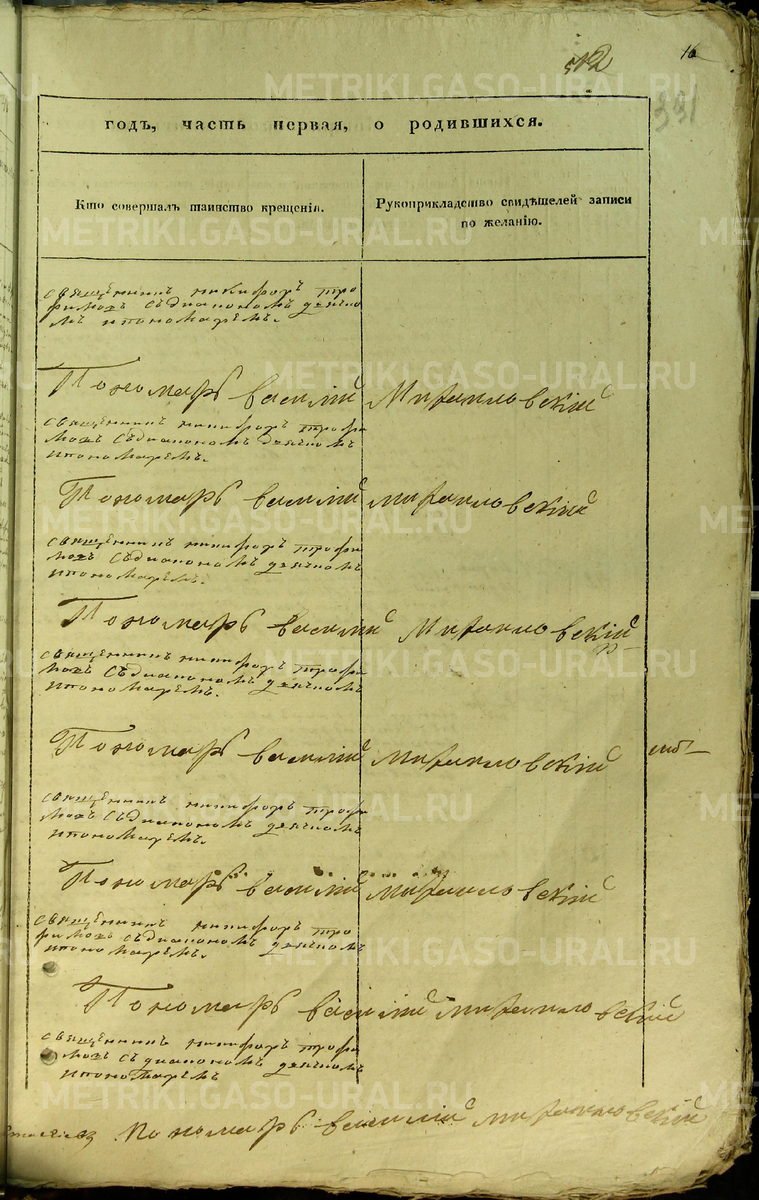 16
512
331
METRIKI.GASO-URAL.RU
годъ, часть первая, о родившихся.
Кто совершалъ таинство крещенія.
Рукоприкладство свидѣтелей записи по желанію.
священникъ никифоръ тро
фимовъ съдиакономъ дьячко
мъ ипономаремъ.
Пономарь василий Михаиловский
священникъ никифоръ трофи
мовъ съдиакономъ дьячкомъ
ипономаремъ.
Пономарь василий михаиловский
священникъ никифоръ трофи
мовъ съдиакономъ дьячкомъ
ипономаремъ.
Пономарь василий Михаиловский
священникъ никифоръ трофи
мовъ съдиакономъ дьячкомъ
ипономаремъ.
Пономарь василий михаиловский
священникъ никифоръ трофи
мовъ съдиакономъ дьячкомъ
ипономаремъ.
Пономарь василий михаиловский
священникъ никифоръ тро
фимовъ съдиакономъ дьячкомъ
ипономаремъ.
Пономарь василий михаиловский
священникъ никифоръ трофи
мовъ съдиакономъ дьячкомъ
ипономаремъ
пономарь василий михаиловский